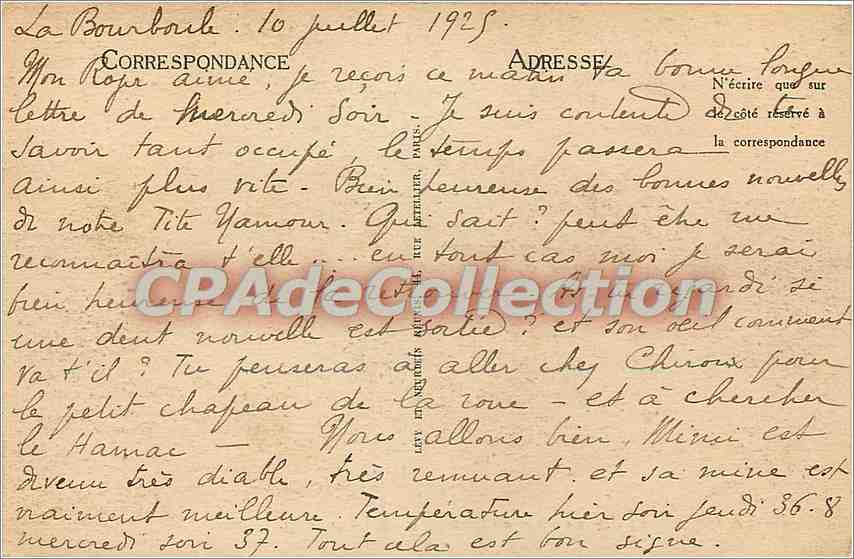 La Bourboule. 10 juillet 1925.
CORRESPONDANCE
ADRESSE
N'écrire que sur
le côté réservé à
la correspondance
Mon Roger aimé, je reçois ce matin ta bonne longue
lettre de mercredi soir - Je suis contente de te
savoir tant occupé, le temps passera
ainsi plus vite - Bien heureuse des bonnes nouvelles
de notre Tite Yamour. Qui sait? peut être me
reconnaîtra t'elle.... en tout cas moi je serai
bien heureuse de la retrouver. As tu regardé si
une dent nouvelle est sortie? et son oeil comment
va t'il? Tu penseras à aller chez Chiroux pour
le petit chapeau de la roue - et à chercher
le Hamac - Nous allons bien, Mimi est
devenu très diable, très remuant et sa mine est
vraiment meilleure. Température hier soir jeudi 36.8
mercredi soir 37. Tout cela est bon signe.
LEVY ET NEURDEIN REUNIS, 44, RUE LETELLIER, PARIS.
CPAdeCollection